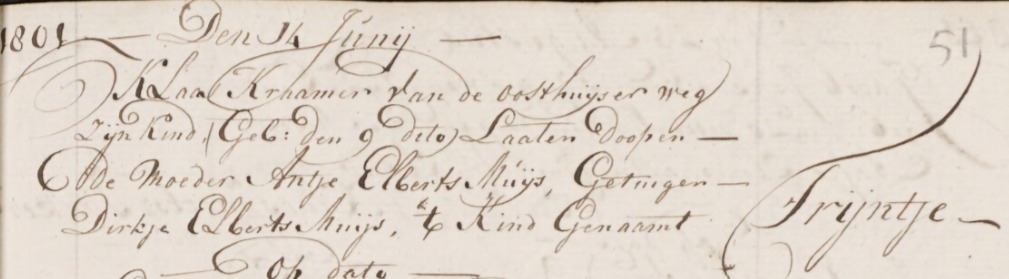 1801 — Den 14 Junij — 51
Klaas Kraamer van de oosthuijser weg
zijn Kind, (Geb: den 9 dito) Laaten Doopen —
De Moeder Antje Elberts Muijs, Getuigen —
Dirkje Elberts Muijs, 't Kind Genaamt Trijntje —
— Op dato —